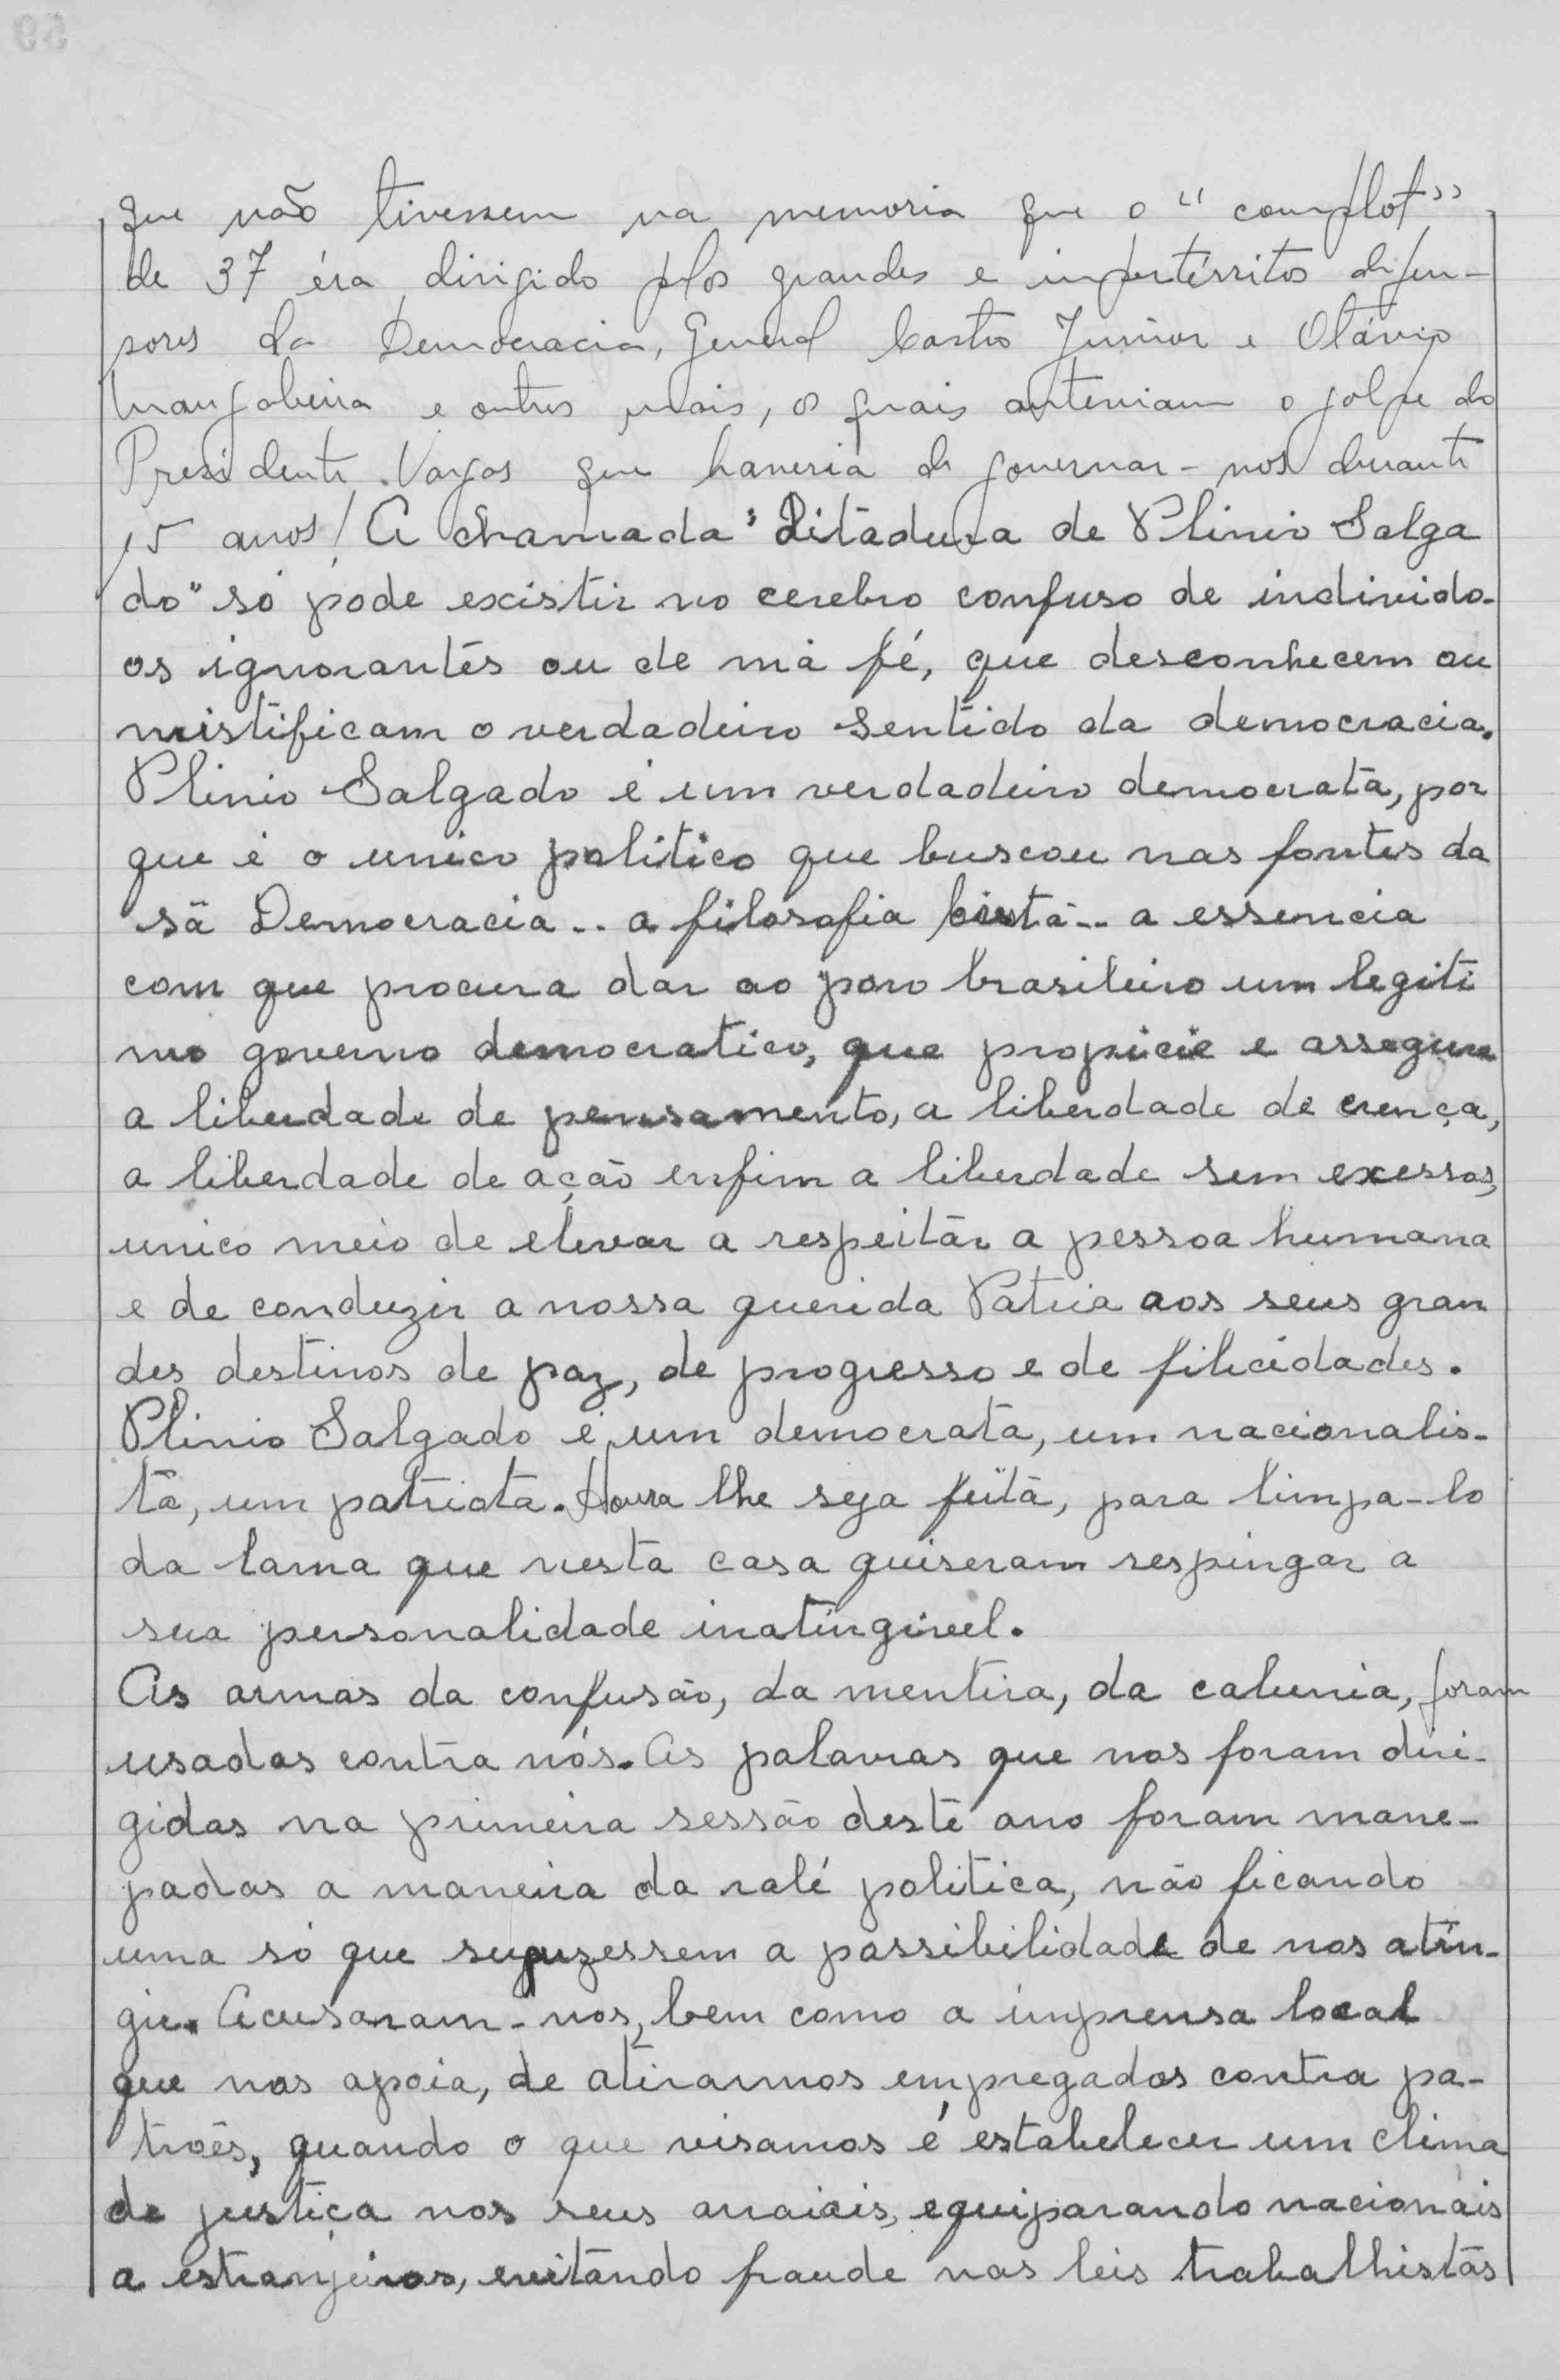 que não tivessem na memoria que o "complot"
de 37 éra dirigido plos grandes e impertérritos defen-
sores da Democracia, General Castro Junior e Otávio
Mangabeira e outros mais, os quais anteviam o golpe do
Presidente Vargas que haveria de governar-nos durante
15 anos! A chamada "Ditadura de Plinio Salga
do" só pode existir no cerebro confuso de individo-
os ignorantes ou de má fé, que desconhecem ou
mistificam o verdadeiro sentido da democracia.
Plinio Salgado é um verdadeiro democrata, por
que é o unico politico que buscou nas fontes da
sã Democracia -- a filosofia cristã -- a essencia
com que procura dar ao povo brasileiro um legiti
mo governo democratico, que propicie e assegure
a liberdade de pensamento, a liberdade de crença,
a liberdade de ação enfim a liberdade sem excessos,
unico meio de elevar a respeitar a pessoa humana
e de conduzir a nossa querida Patria aos seus gran
des destinos de paz, de progresso e de filicidades.
Plinio Salgado é um democrata, um nacionalis-
ta, um patriota. Honra lhe seja feita, para limpa-lo
da lama que nesta casa quiseram respingar a
sua personalidade inatingivel.
As armas da confusão, da mentira, da calunia, foram
usadas contra nós. As palavras que nos foram diri-
gidas na primeira sessão deste ano foram mane-
jadas a maneira da ralé politica, não ficando
uma só que supuzessem a possibilidade de nos atin-
gir. Acusaram-nos, bem como a imprensa local
que nos apoia, de atirarmos empregados contra pa-
troẽs, quando o que visamos é estabelecer um clima
de justiça nos seus arraiais, equiparando nacionais
a estranjeiros, evitando fraude nas leis trabalhistas